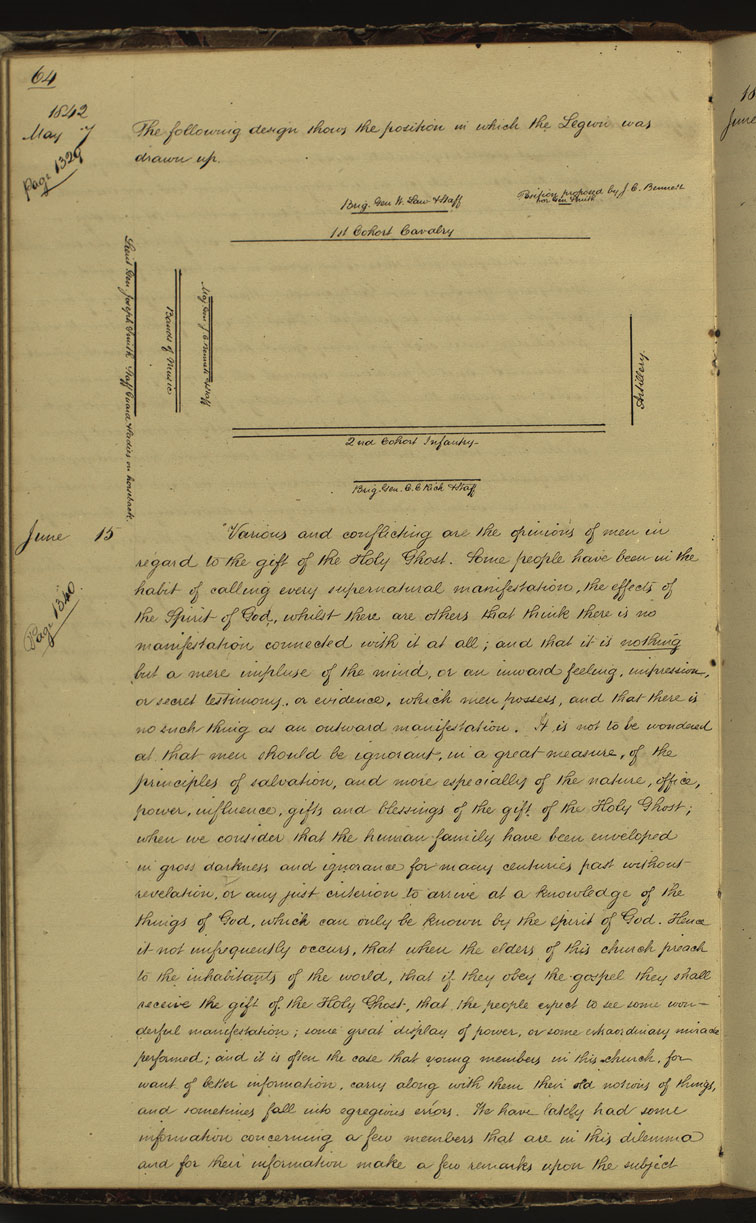 64
1842
May 7
Page 1329
The following design shows the position in which the Legion was
drawn up.
Brig. Gen W. Law & Staff
Position proposed by J. C. Bennett
for Gen Smith
1st Cohort Cavalry
Lieut Gen. Joseph Smith. Staff Guard & Ladies on horseback.
Bands of Music
Maj Gen J C Bennett & Staff
Artillery
2nd Cohort Infantry
Brig. Gen. C. C Rich & Staff
June 15
Page 1340
"Various and conflicting are the opinions of men in
regard to the gift of the Holy Ghost. Some people have been in the
habit of calling every supernatural manifestation, the effects of
the Spirit of God, whilst there are others that think there is no
manifestation connected with it at all; and that it is nothing
but a mere impluse of the mind, or an inward feeling, impression,
or secret testimony, or evidence, which men possess, and that there is
no such thing as an outward manifestation. It is not to be wondered
at that men should be ignorant, in a great measure, of the
principles of salvation, and more especially of the nature, office,
power, influence, gifts and blessings of the gift of the Holy Ghost;
when we consider that the human family have been enveloped
in gross darkness and ignorance for many centuries past without
revelation, or any just criterion to arrive at a knowledge of the
things of God, which can only be known by the spirit of God. Hence
it not unfrequently occurs, that when the elders of this church preach
to the inhabitants of the world, that if they obey the gospel they shall
receive the gift of the Holy Ghost, that, the people expect to see some won-
derful manifestation; some great display of power, or some extraordinary miracle
performed; and it is often the case that young members in this church, for
want of better information, carry along with them their old notions of things,
and sometimes fall into egregious errors. We have lately had some
information concerning a few members that are in this dilemma
and for their information make a few remarks upon the subject
18
June